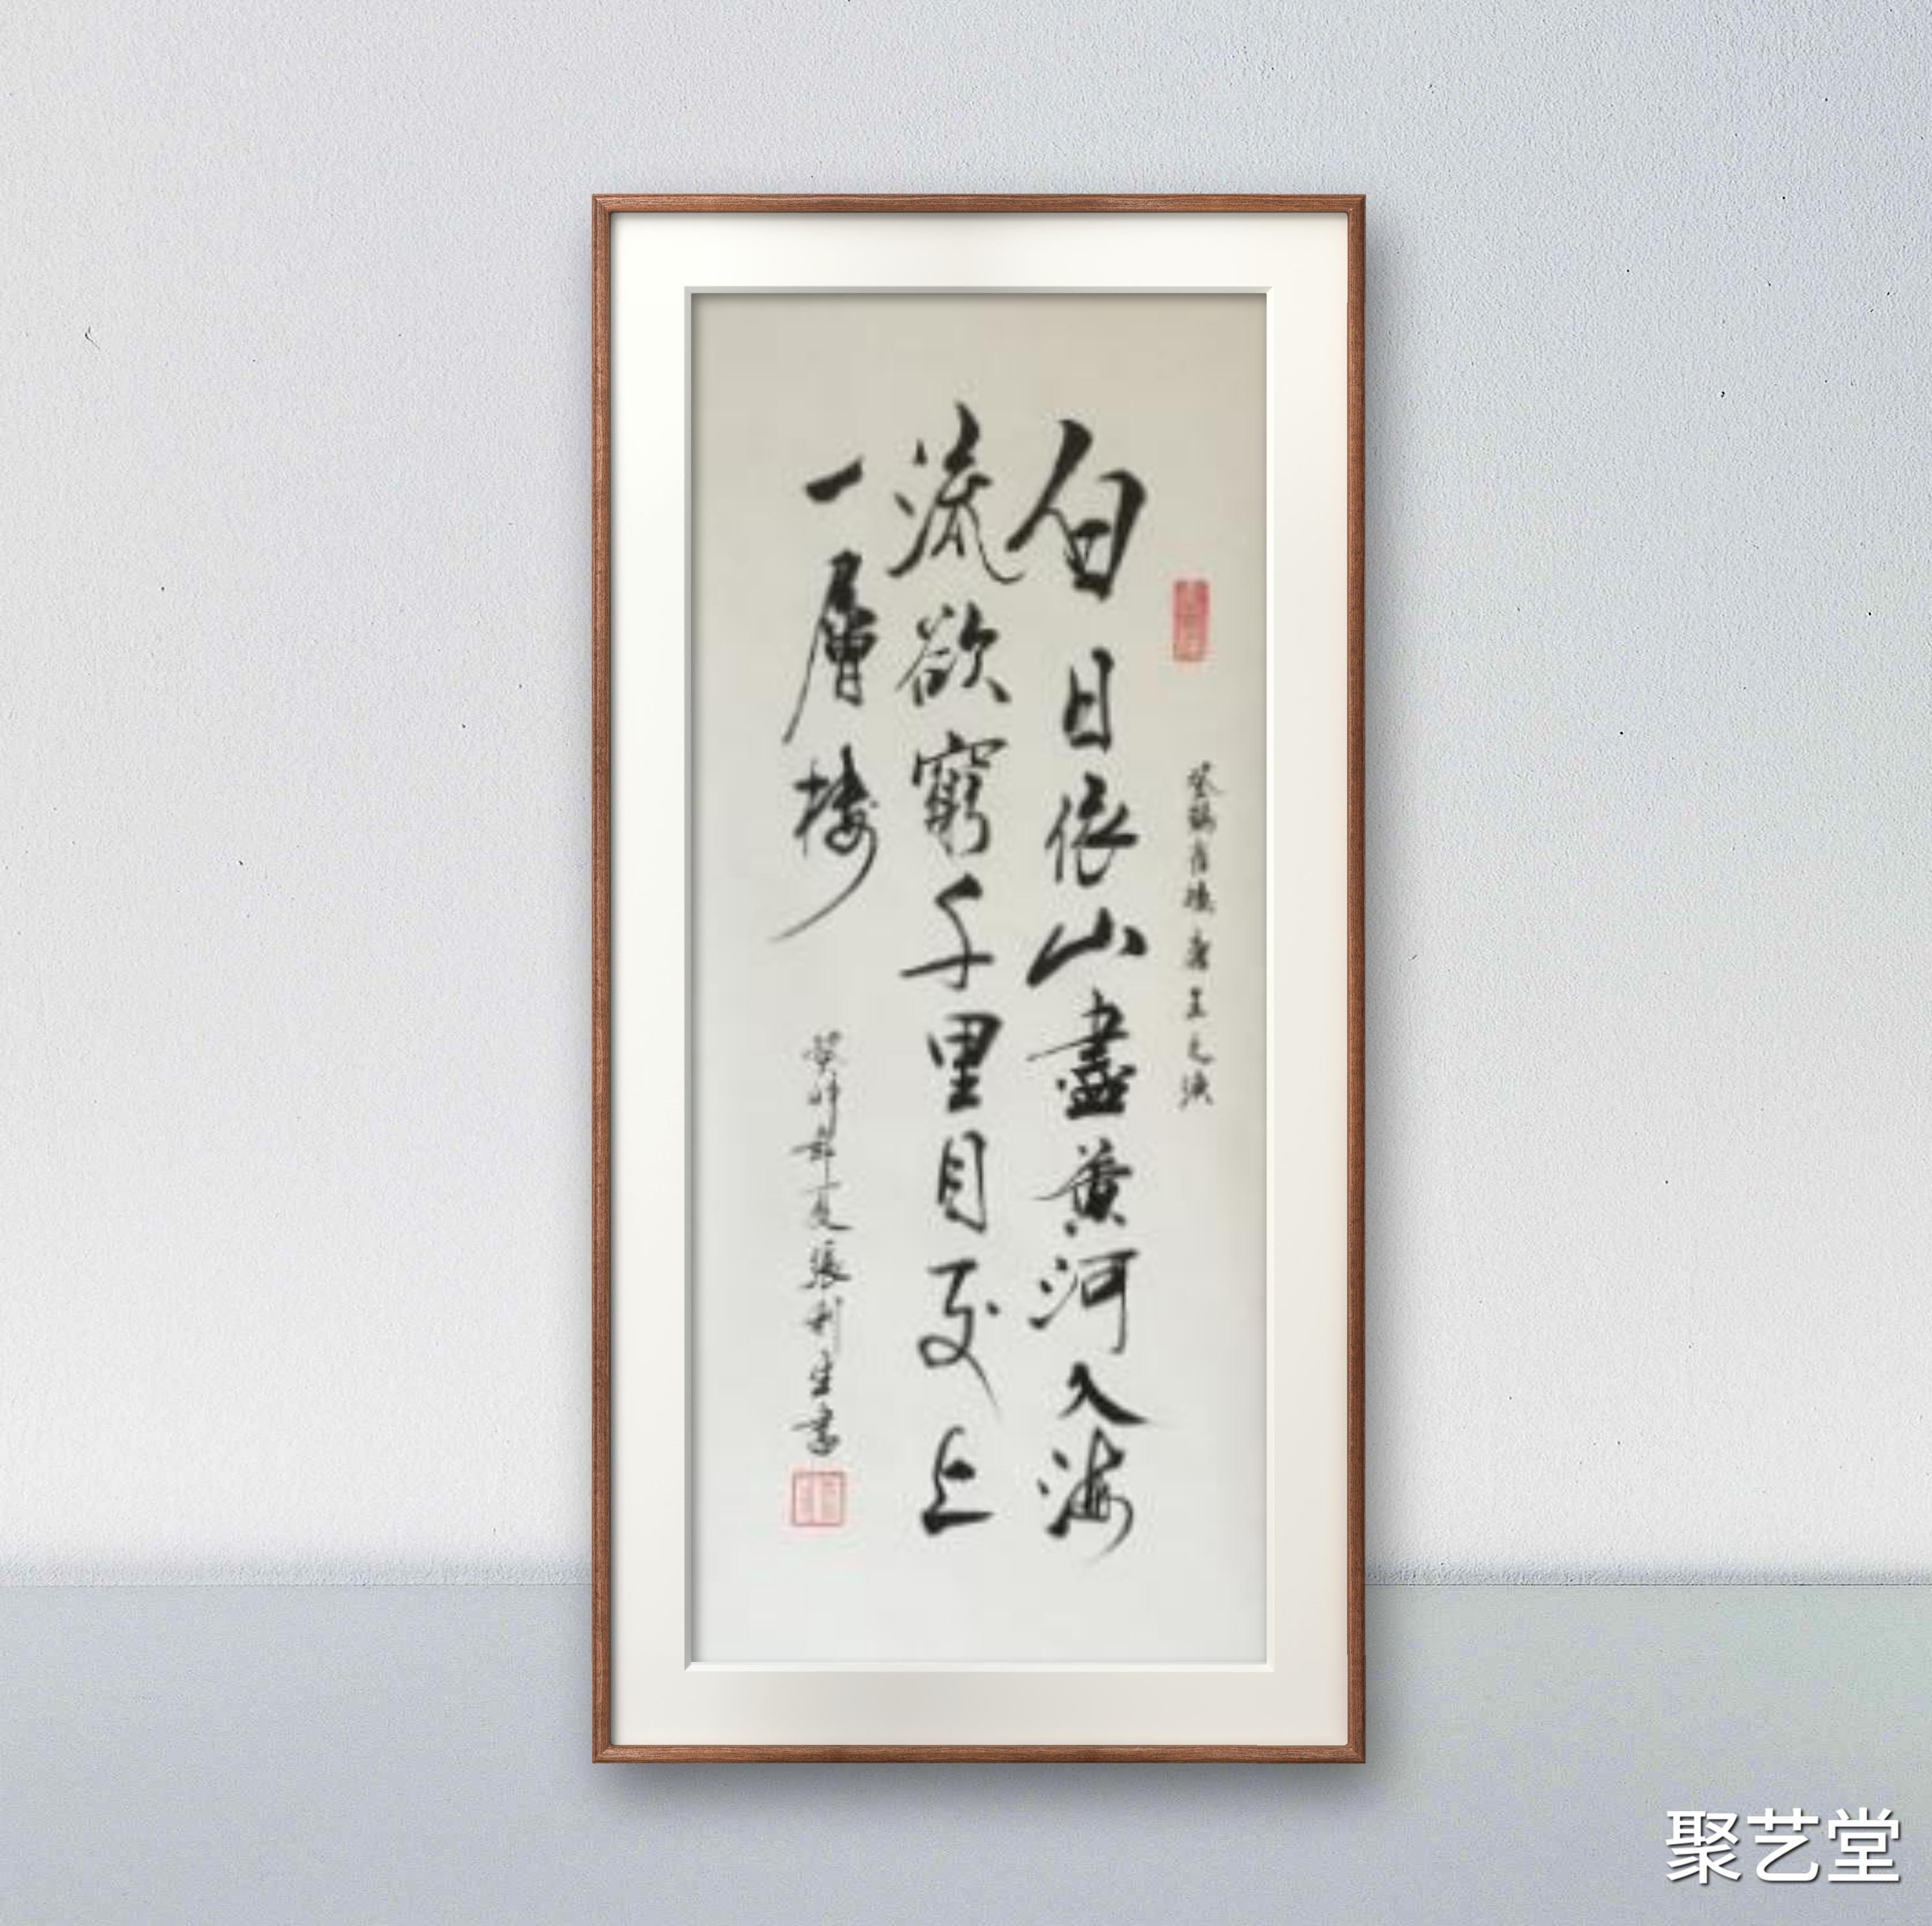 登鸛雀樓 唐 王之渙
白日依山盡黄河入海
流欲窮千里目更上
一層樓
癸卯年夏張利生書
聚艺堂